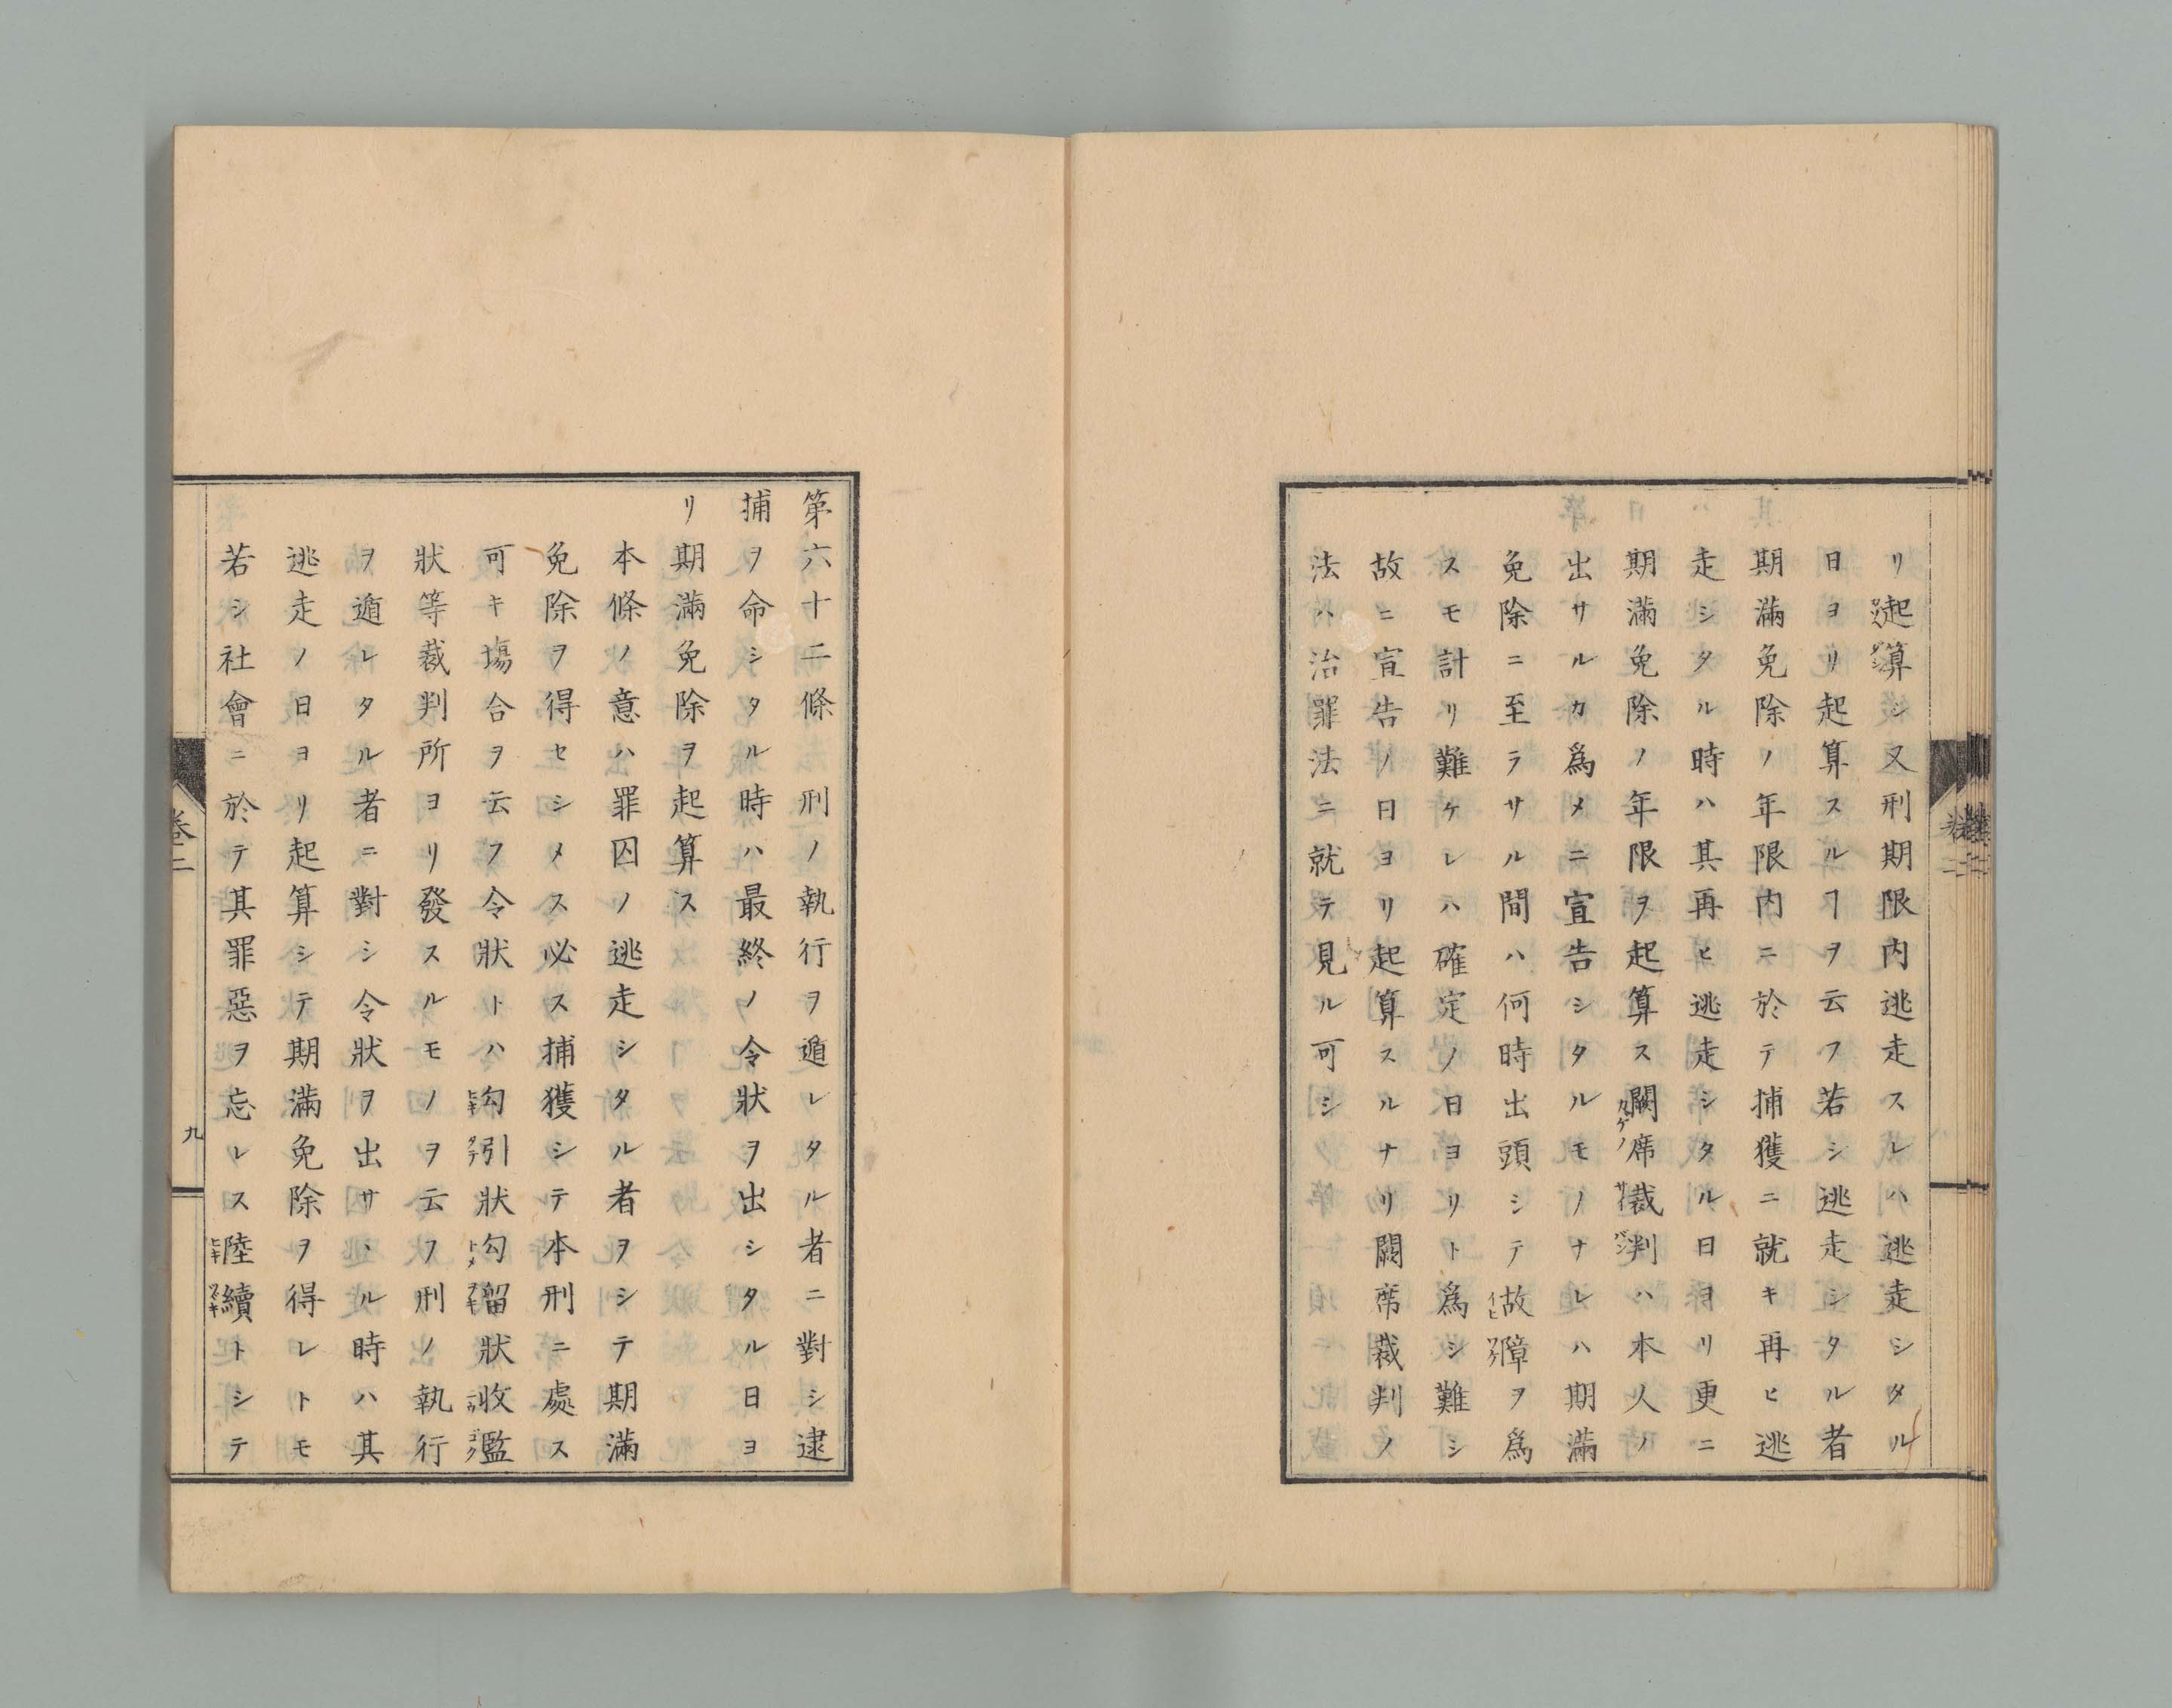 リ起算シ又刑期限内逃走スレハ逃走シタル
日ヨリ起算スルヿヲ云フ若シ逃走シタル者
期滿免除ノ年限内ニ於テ捕獲ニ就キ再ヒ逃
走シタル時ハ其再ヒ逃走シタル日ヨリ更ニ
期滿免除ノ年限ヲ起算ス闕席裁判ハ本人ノ
出サルカ爲メニ宣告シタルモノナレハ期滿
免除ニ至ラサル間ハ何時出頭シテ故障ヲ爲
スモ計リ難ケレハ確定ノ日ヨリト爲シ難シ
故ニ宣告ノ日ヨリ起算スルナリ闕席裁判ノ
法ハ治罪法ニ就テ見ル可シ
第六十二條　刑ノ執行ヲ遁レタル者ニ對シ逮
捕ヲ命シタル時ハ最終ノ令狀ヲ出シタル日ヨ
リ期滿免除ヲ起算ス
本條ノ意ハ罪囚ノ逃走シタル者ヲシテ期滿
免除ヲ得セシメス必ス捕獲シテ本刑ニ處ス
可キ塲合ヲ云フ令狀トハ勾引狀勾留狀收監
狀等裁判所ヨリ發スルモノヲ云フ刑ノ執行
ヲ遁レタル者ニ對シ令狀ヲ出サヽル時ハ其
逃走ノ日ヨリ起算シテ期滿免除ヲ得レトモ
若シ社會ニ於テ其罪惡ヲ忘レス陸續トシテ
卷二
九